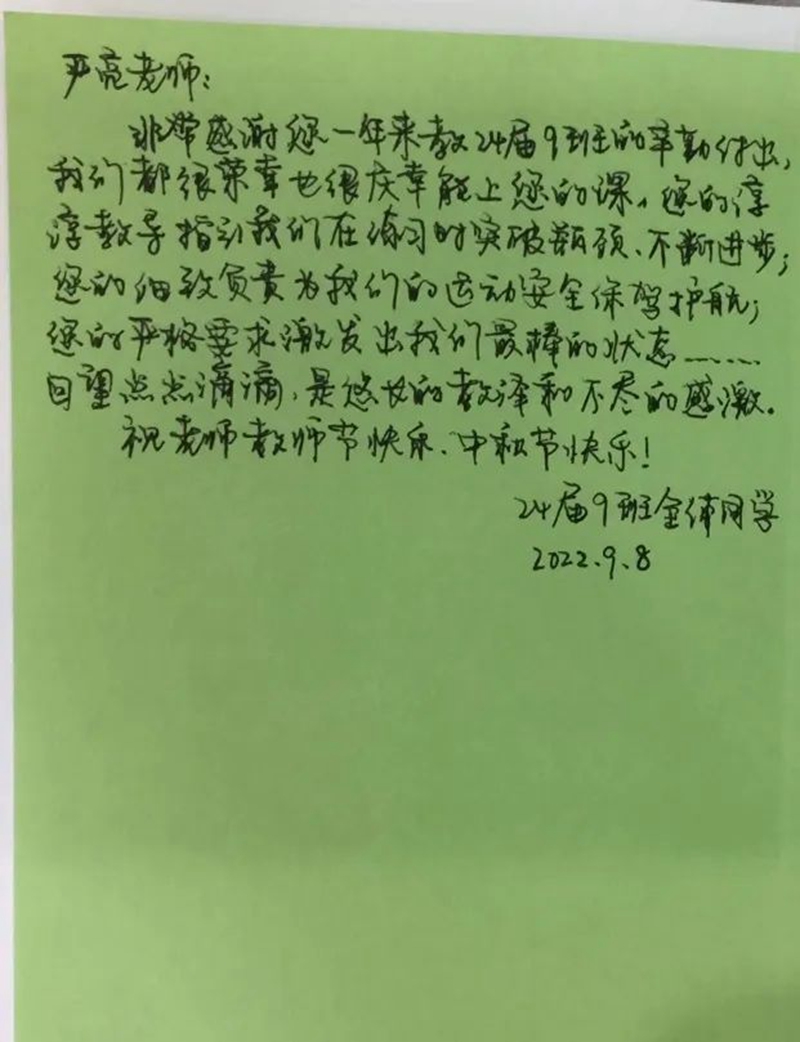 严亮老师：
非常感谢您一年来教24届9班的辛勤付出，
我们都很荣幸也很庆幸能上您的课。您的谆
谆教导指引我们在练习时突破瓶颈、不断进步；
您的细致负责为我们的运动安全保驾护航；
您的严格要求激发出我们最棒的状态……
回望点点滴滴，是悠长的教泽和不尽的感激。
祝老师教师节快乐、中秋节快乐！
24届9班全体同学
2022.9.8